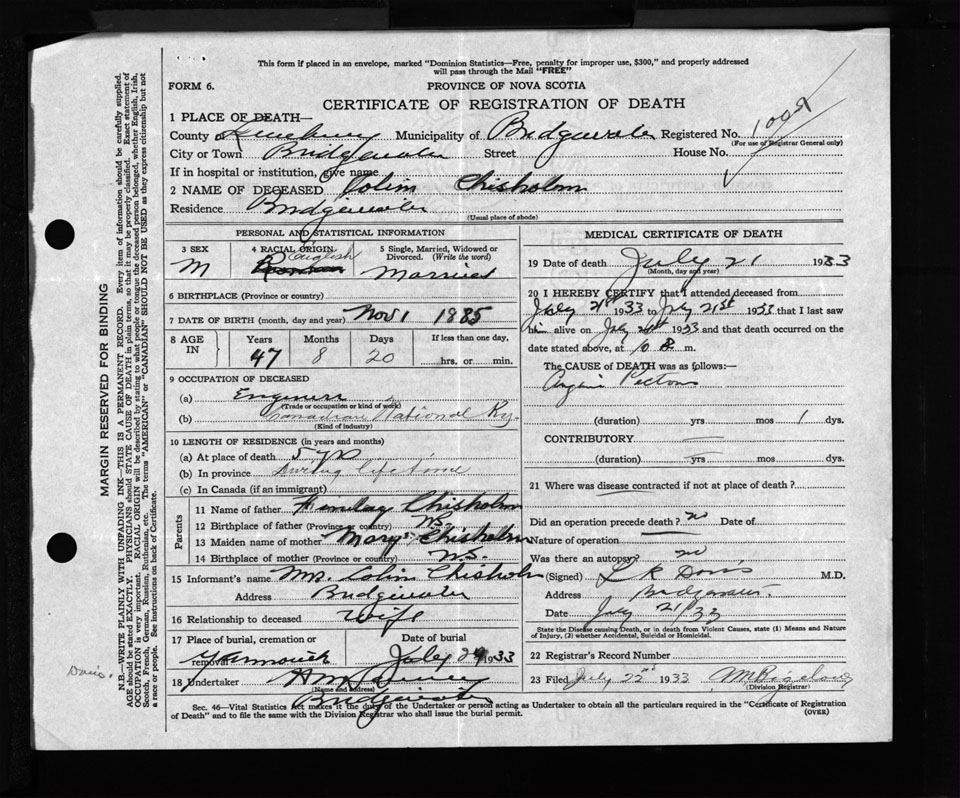 This form if placed in an envelope, marked "Dominion Statistics—Free, penalty for improper use, $300," and properly addressed
will pass through the Mail "FREE"
FORM 6.
PROVINCE OF NOVA SCOTIA
CERTIFICATE OF REGISTRATION OF DEATH
1 PLACE OF DEATH—
County Municipality of Bridgewater Registered No.
(For use of Registrar General only)
City or Town Bridgewater Street House No.
If in hospital or institution, give name
2 NAME OF DECEASED Colin Chisholm
Residence Bridgewater
(Usual place of abode)
PERSONAL AND STATISTICAL INFORMATION
3 SEX 4 RACIAL ORIGIN 5 Single, Married, Widowed or Divorced. (Write the word)
M English Married
6 BIRTHPLACE (Province or country)
7 DATE OF BIRTH (month, day and year) Nov 1 1885
8 AGE IN Years Months Days If less than one day,
47 8 20 hrs. or min.
9 OCCUPATION OF DECEASED
(a) Engineer
(Trade or occupation or kind of work)
(b) Canadian National Ry.
(Kind of industry)
10 LENGTH OF RESIDENCE (in years and months)
(a) At place of death 5 yrs
(b) In province During life time
(c) In Canada (if an immigrant)
Parents
11 Name of father Finlay Chisholm
12 Birthplace of father (Province or country) N.S.
13 Maiden name of mother Mary Chisholm
14 Birthplace of mother (Province or country) N.S.
15 Informant's name Mrs. Colin Chisholm
Address Bridgewater
16 Relationship to deceased Wife
17 Place of burial, cremation or removal Date of burial
Yarmouth July 24 1933
18 Undertaker
(Name and address)
Bridgewater
MEDICAL CERTIFICATE OF DEATH
19 Date of death July 21 1933
(Month, day and year)
20 I HEREBY CERTIFY that I attended deceased from
July 21st 1933 to July 21st 1933 that I last saw
him alive on July 21st 1933 and that death occurred on
date stated above, at 10 m.
The CAUSE of DEATH was as follows:—
Angina Pectoris
(duration) yrs mos 1 dys.
CONTRIBUTORY
(duration) yrs mos dys.
21 Where was disease contracted if not at place of death?
Did an operation precede death? no Date of
Nature of operation
Was there an autopsy? no
(Signed) M.D.
Address Bridgewater
Date July 21 33
State the Disease causing Death, or in death from Violent Causes, state (1) Means and Nature
of Injury, (2) whether Accidental, Suicidal or Homicidal.
22 Registrar's Record Number
23 Filed July 22nd 1933
(Division Registrar)
Sec. 46—Vital Statistics Act makes it the duty of the Undertaker or person acting as Undertaker to obtain all the particulars required in the "Certificate of Registration
of Death" and to file the same with the Division Registrar who shall issue the burial permit.
(OVER)
MARGIN RESERVED FOR BINDING
N.B.—WRITE PLAINLY WITH UNFADING INK—THIS IS A PERMANENT RECORD. Every item of information should be carefully supplied.
AGE should be stated EXACTLY. PHYSICIANS should STATE CAUSE OF DEATH in plain terms, so that it may be properly classified. Exact statement of
OCCUPATION is very important. RACIAL ORIGIN will be described by stating to what people or tongue the deceased person belonged, whether English, Irish,
Scotch, French, German, Russian, Ruthenian, etc. The terms "AMERICAN" or "CANADIAN" SHOULD NOT BE USED as they express citizenship but not
a race or people. See instructions on back of Certificate.